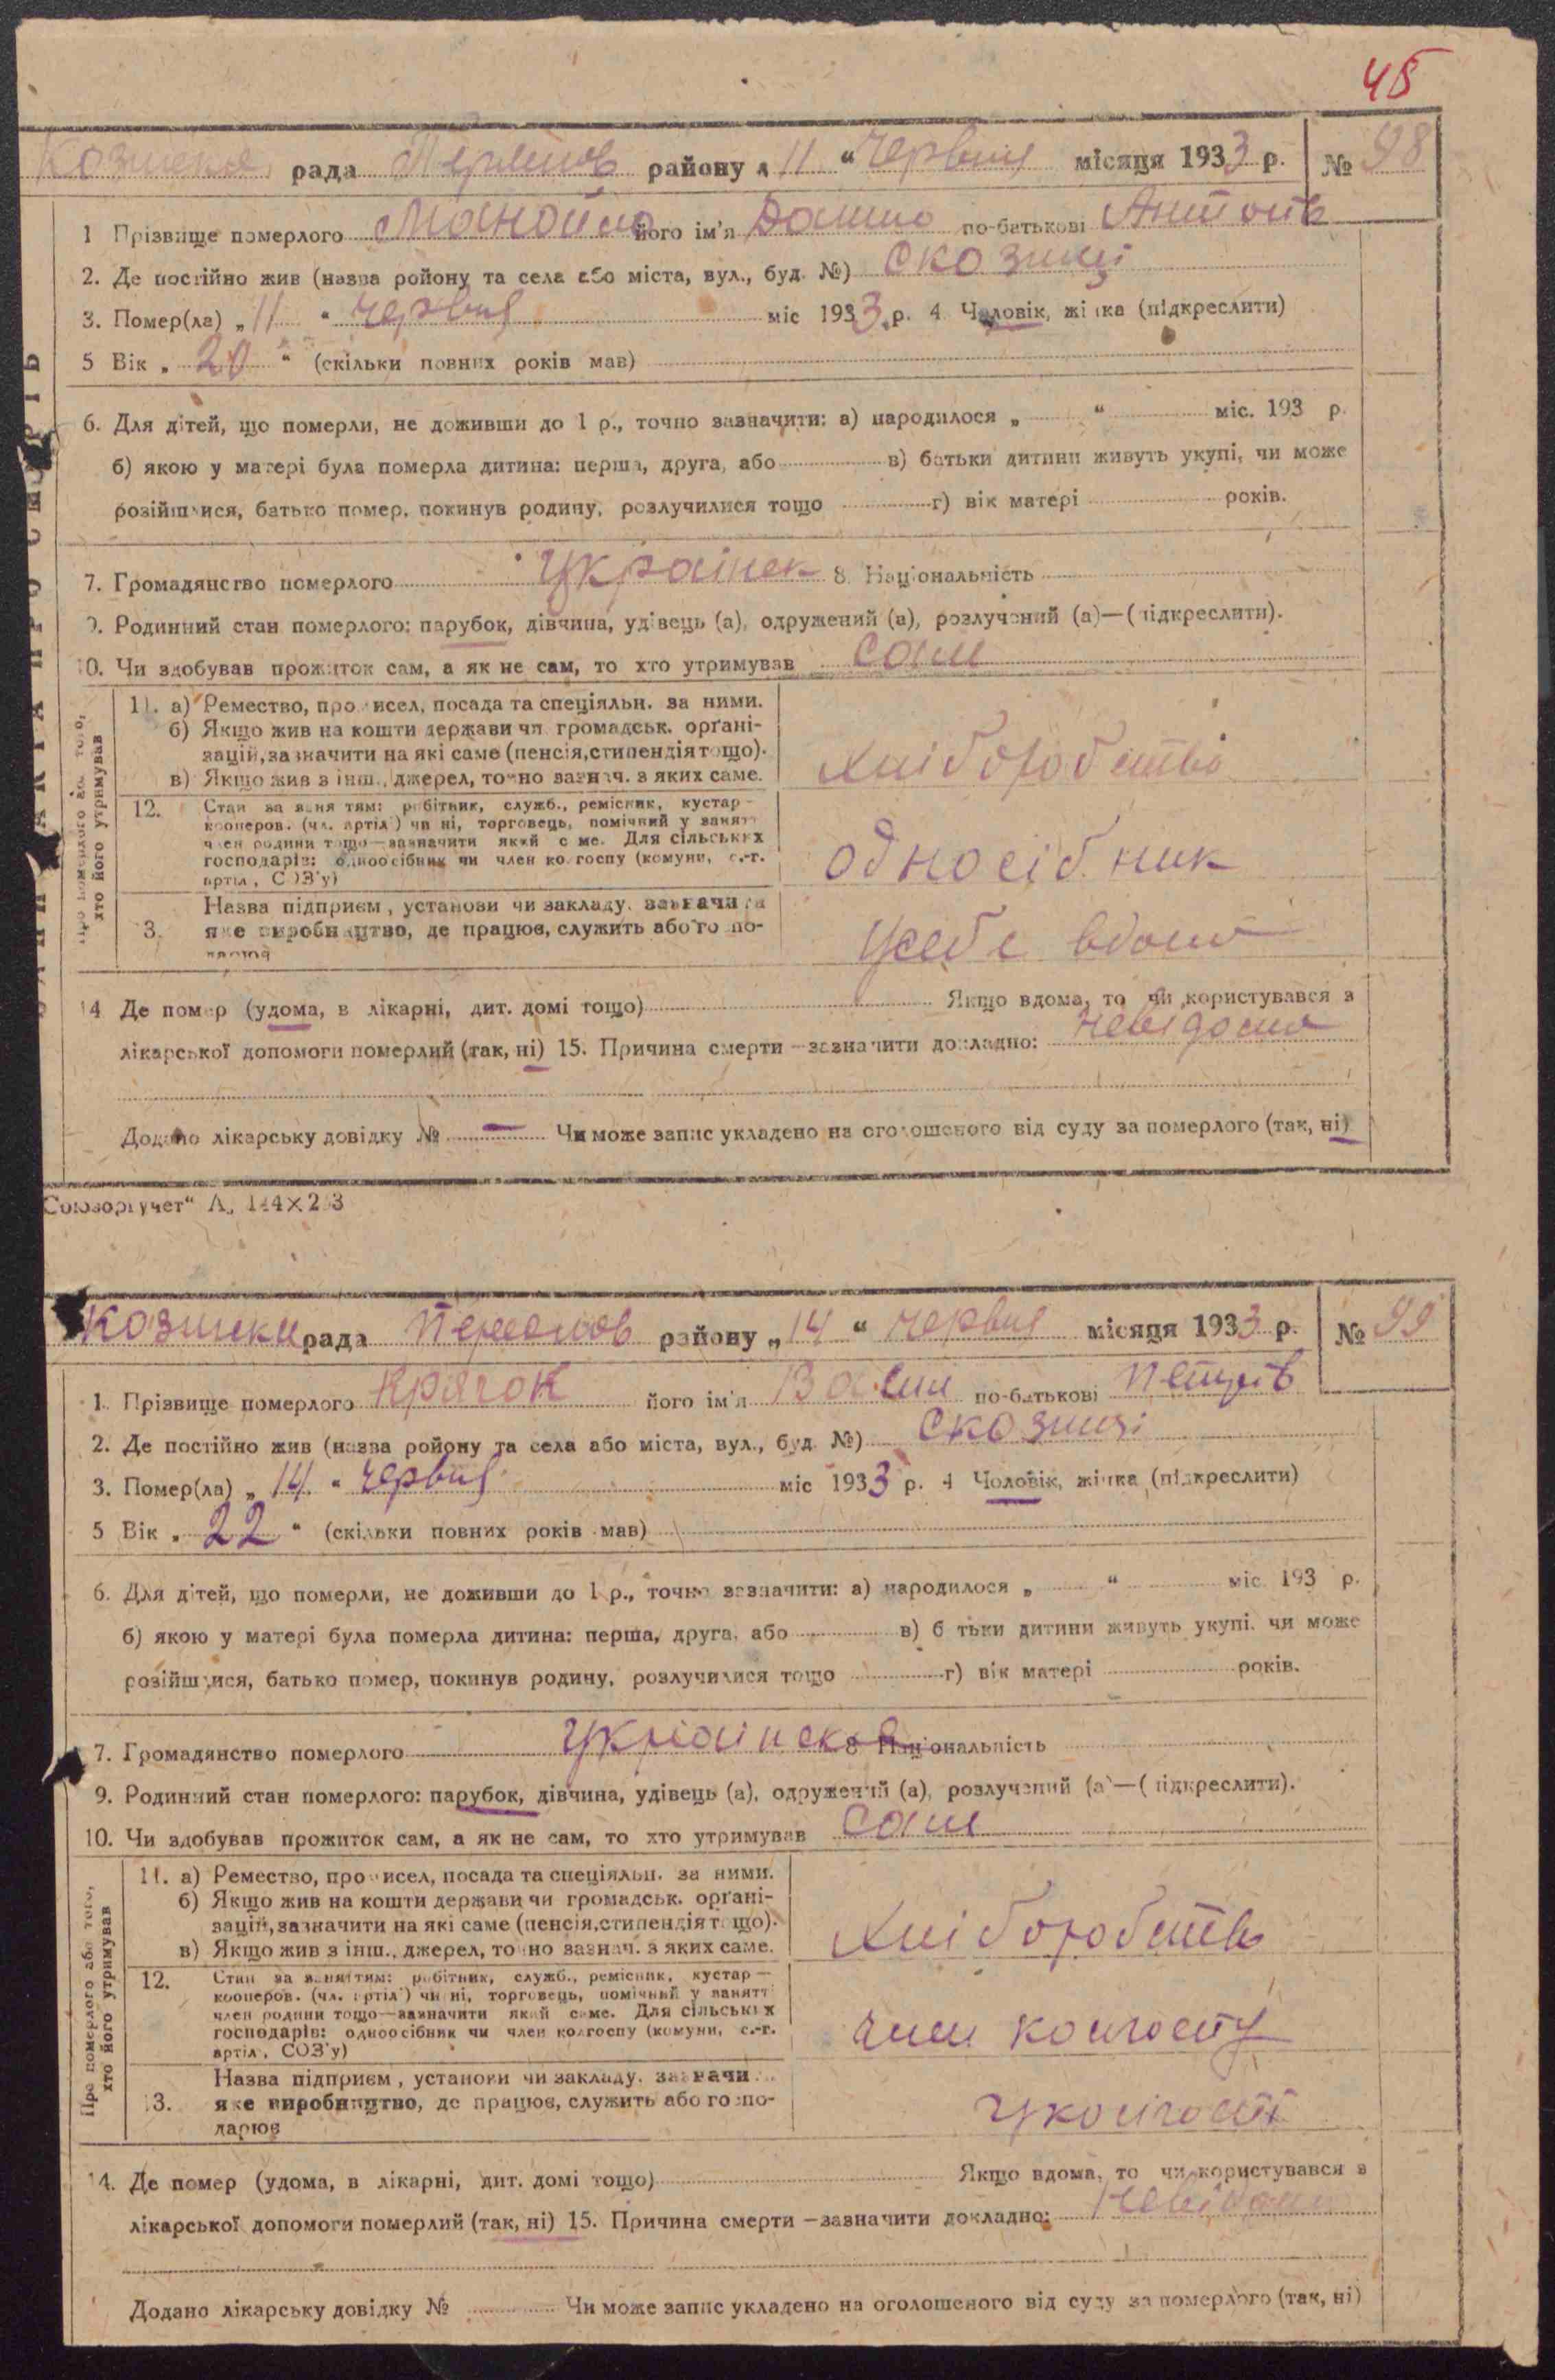 45
рада району „ 11 “ Червня місяця 1933 р. № 98
1 Прізвище померлого Манойло його ім'я Данило по-батькові Антонів
2. Де постійно жив (назва ройону та села або міста, вул., буд. №) с Козинці
3. Помер(ла) „ 11 “ червня міс 1933 р. 4 Чоловік, жінка (підкреслити)
5 Вік „ “ (скільки повних років мав)
6. Для дітей, що померли, не доживши до 1 р., точно зазначити: а) народилося „ “ міс. 193 р.
б) якою у матері була померла дитина: перша, друга, або в) батьки дитини живуть укупі, чи може
розійшлися, батько помер, покинув родину, розлучилися тощо г) вік матері років.
7. Громадянство померлого Українец 8. Національність
9. Родинний стан померлого: парубок, дівчина, удівець (а), одружений (а), розлучений (а)—(підкреслити).
10. Чи здобував прожиток сам, а як не сам, то хто утримував Сам
Про померлого або того,
хто його утримував
11. а) Ремество, промисел, посада та спеціяльн. за ними.
б) Якщо жив на кошти держави чи громадськ. орґані-
зацій, зазначити на які саме (пенсія, стипендія тощо).
в) Якщо жив з інш., джерел, точно зазнач. з яких саме.
Хліборобство
12. Стан за заняттям: робітник, служб., ремісник, кустар—
кооперов. (чл. артіл.) чи ні, торговець, помічний у занятт
член родини тощо—зазначити який саме. Для сільських
господарів: одноосібник чи член колгоспу (комуни, с.-г.
артіл, СОЗ'у)
односібник
Назва підприєм, установи чи закладу, зазначити
13. яке виробництво, де працює, служить або госпо-
дарює
Усебе вдома
14 Де помер (удома, в лікарні, дит. домі тощо) Якщо вдома, то чи користувався з
лікарської допомоги померлий (так, ні) 15. Причина смерти—зазначити докладно: невідома
Додано лікарську довідку № — Чи може запис укладено на оголошеного від суду за померлого (так, ні)
Союзоргучет“
Козинска рада району „ 14 “ червня місяця 1933 р. № 99
1. Прізвище померлого Крячок його ім'я Васил по-батькові Петрів
2. Де постійно жив (назва ройону та села або міста, вул., буд. №) с Козинці
3. Помер(ла) „ 14 “ червня міс 1933 р. 4 Чоловік, жінка (підкреслити)
5 Вік „ 22 “ (скільки повних років мав)
6. Для дітей, що померли, не доживши до 1 р., точно зазначити: а) народилося „ “ міс. 193 р.
б) якою у матері була померла дитина: перша, друга, або в) батьки дитини живуть укупі, чи може
розійшлися, батько помер, покинув родину, розлучилися тощо г) вік матері років.
7. Громадянство померлого Українска 8 Національність
9. Родинний стан померлого: парубок, дівчина, удівець (а), одружений (а), розлучений (а)—(підкреслити).
10. Чи здобував прожиток сам, а як не сам, то хто утримував Сам
Про померлого або того,
хто його утримував
11. а) Ремество, промисел, посада та спеціяльн. за ними.
б) Якщо жив на кошти держави чи громадськ. орґані-
зацій, зазначити на які саме (пенсія, стипендія тощо).
в) Якщо жив з інш., джерел, точно зазнач. з яких саме.
Хліборобств
12. Стан за заняттям: робітник, служб., ремісник, кустар—
кооперов. (чл. артіл.) чи ні, торговець, помічний у занятт
член родини тощо—зазначити який саме. Для сільських
господарів: одноосібник чи член колгоспу (комуни, с.-г.
артіл, СОЗ'у)
член колгоспу
Назва підприєм, установи чи закладу, зазначи
13. яке виробництво, де працює, служить або госпо-
дарює
уколгоспі
14. Де помер (удома, в лікарні, дит. домі тощо) Якщо вдома, то чи користувався з
лікарської допомоги померлий (так, ні) 15. Причина смерти—зазначити докладно: невідома
Додано лікарську довідку № Чи може запис укладено на оголошеного від суду за померлого (так, ні)